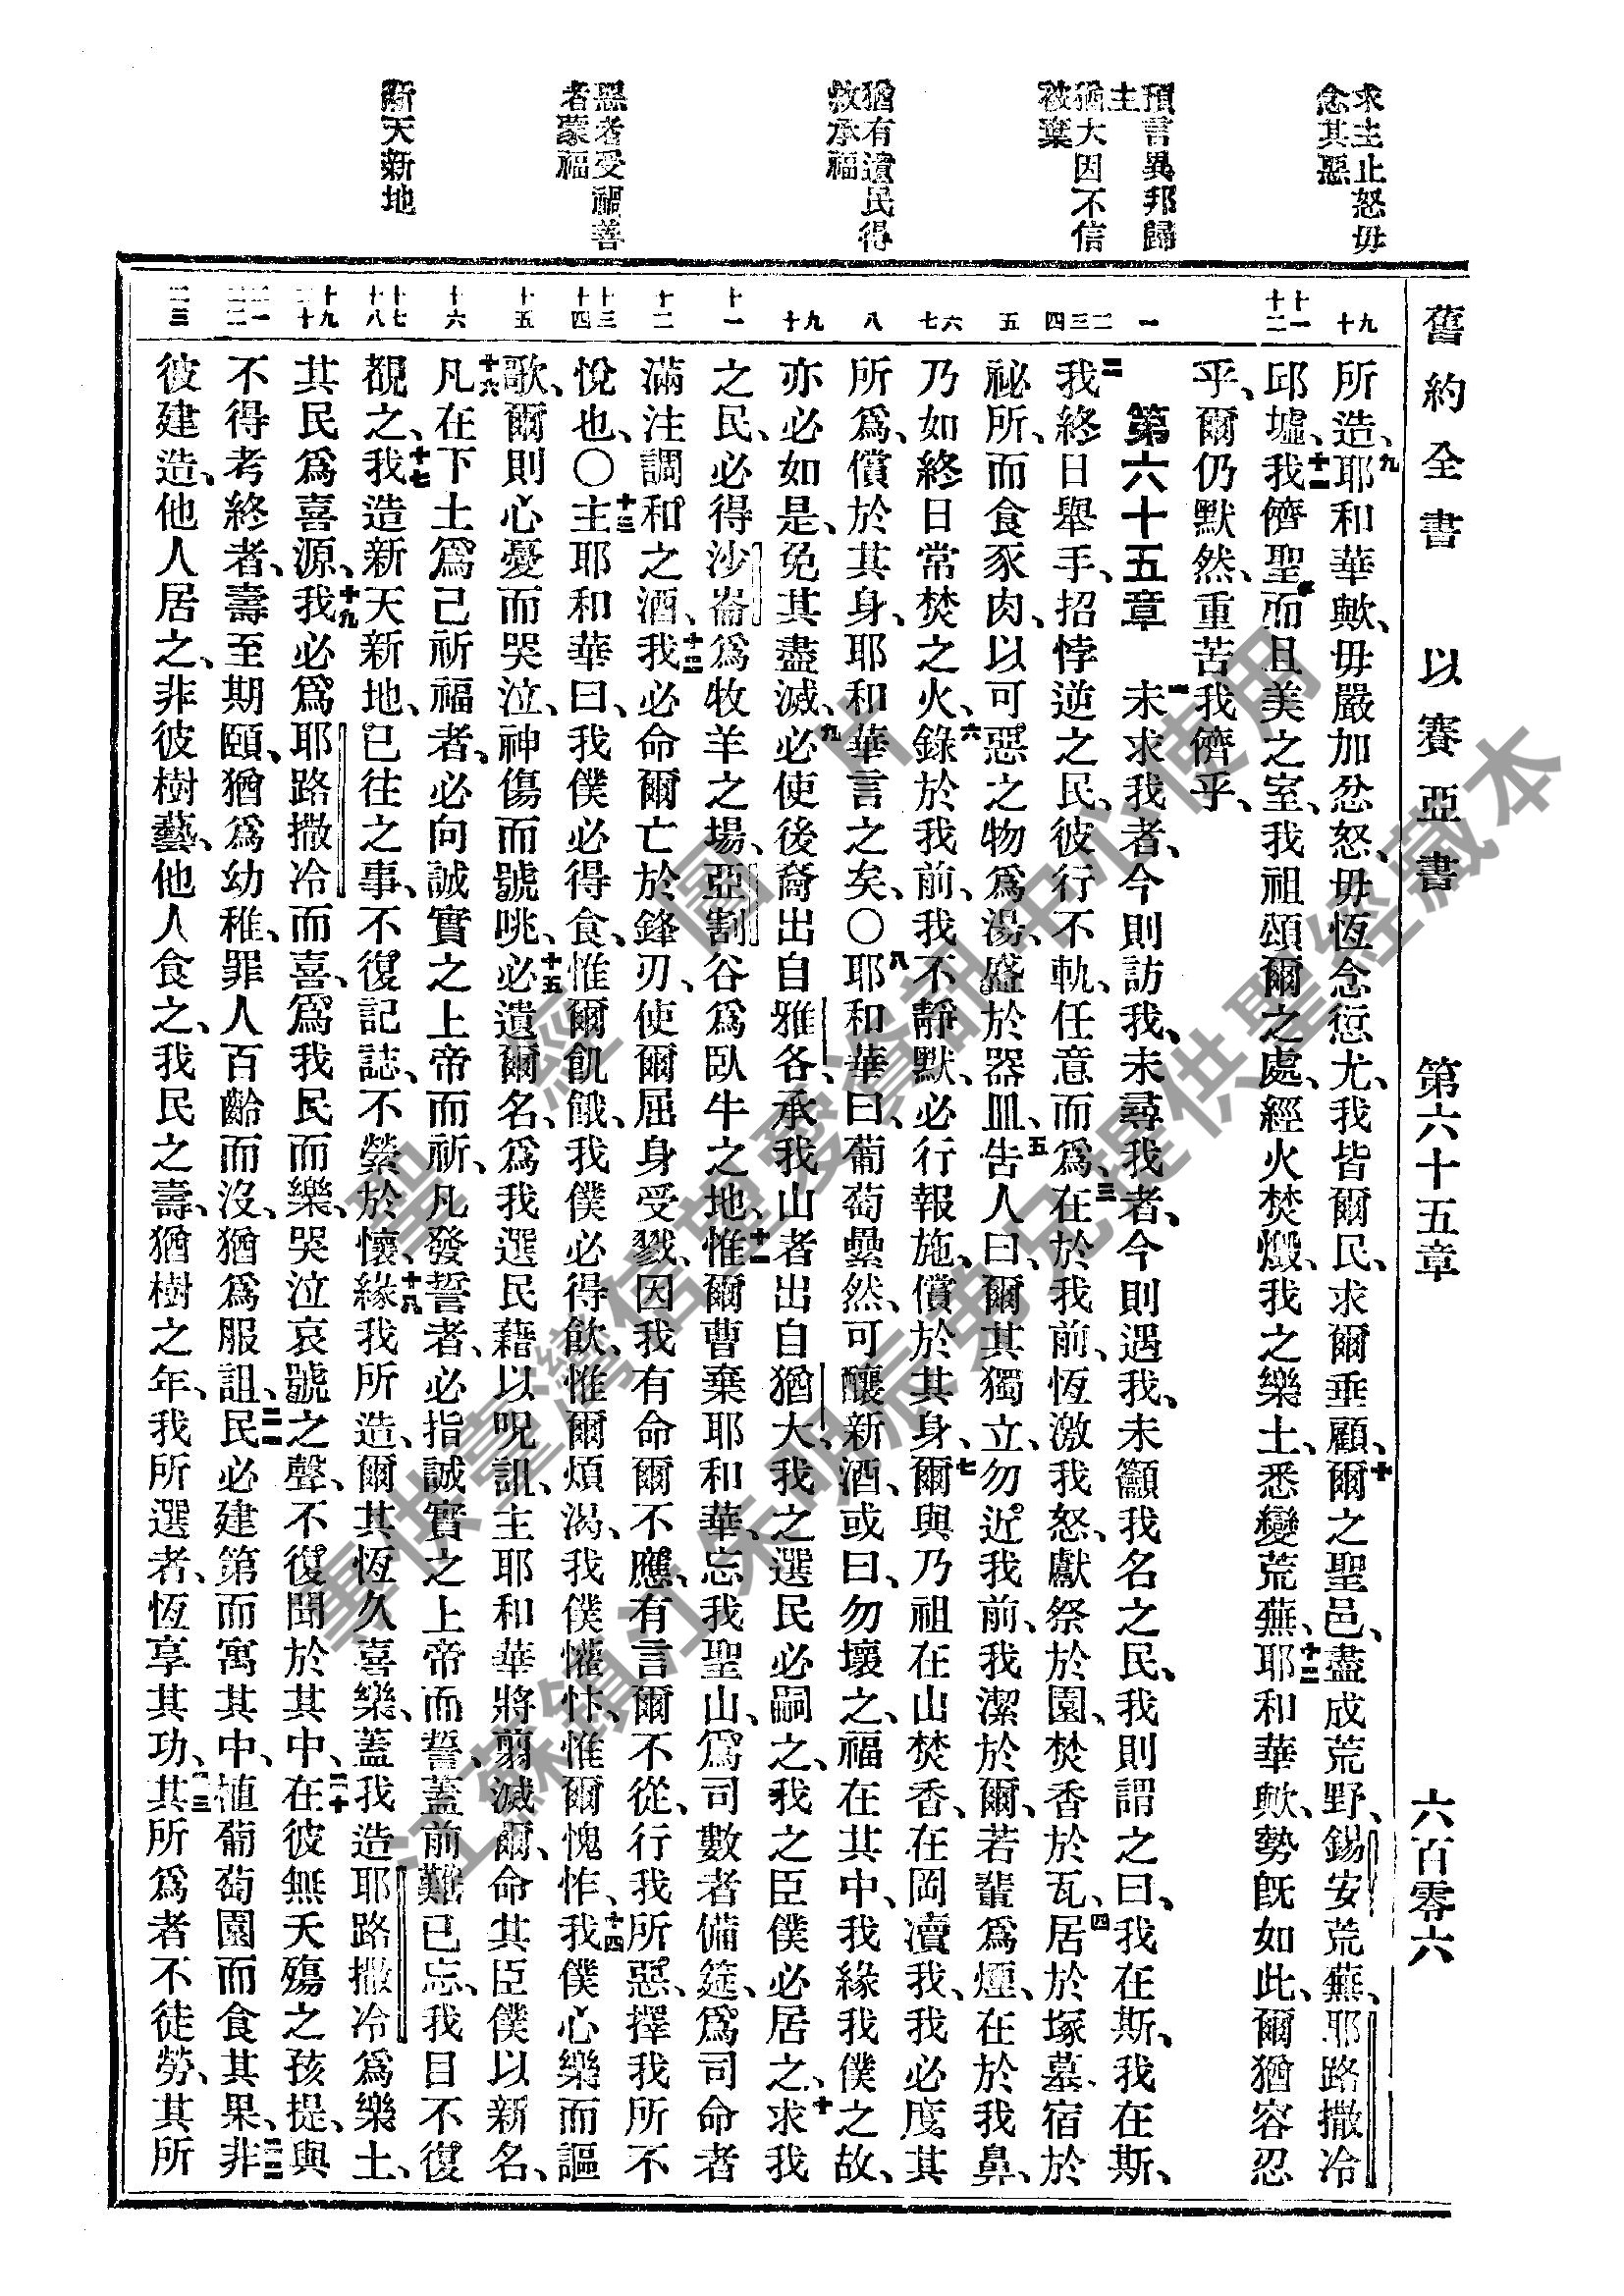 舊約全書 以賽亞書 第六十五章 六百零六
求主止怒毋
念其惡
預言異邦歸
主
猶大因不信
被棄
猶有遺民得
救承福
惡者受禍善
者蒙福
新天新地
九 十
十一 十二
一
二 三 四
五
六 七
八
九 十
十一
十二
十三 十四
十五
十六
十七 十八
十九 二十
二一 二二
二三
所造、九耶和華歟、毋嚴加忿怒、毋恆念愆尤、我皆爾民、求爾垂顧、十爾之聖邑、盡成荒野、錫安荒蕪、耶路撒冷
邱墟、十一我儕聖而且美之室、我祖頌爾之處、經火焚燬、我之樂土、悉變荒蕪、十二耶和華歟、勢旣如此、爾猶容忍
乎、爾仍默然、重苦我儕乎、
第六十五章 一未求我者、今則訪我、未尋我者、今則遇我、未籲我名之民、我則謂之曰、我在斯、我在斯、
二我終日舉手、招悖逆之民、彼行不軌、任意而爲、三在於我前、恆激我怒、獻祭於園、焚香於瓦、四居於塚墓、宿於
祕所、而食豕肉、以可惡之物爲湯、盛於器皿、五告人曰、爾其獨立、勿近我前、我潔於爾、若輩爲煙、在於我鼻、
乃如終日常焚之火、六錄於我前、我不靜默、必行報施、償於其身、七爾與乃祖在山焚香、在岡瀆我、我必度其
所爲、償於其身、耶和華言之矣、〇八耶和華曰、葡萄纍然、可釀新酒、或曰、勿壞之、福在其中、我緣我僕之故、
亦必如是、免其盡滅、九必使後裔出自雅各、承我山者出自猶大、我之選民必嗣之、我之臣僕必居之、十求我
之民、必得沙崙爲牧羊之場、亞割谷爲臥牛之地、十一惟爾曹棄耶和華、忘我聖山、爲司數者備筵、爲司命者
滿注調和之酒、十二我必命爾亡於鋒刃、使爾屈身受戮、因我有命爾不應、有言爾不從、行我所惡、擇我所不
悅也、〇十三主耶和華曰、我僕必得食、惟爾飢餓、我僕必得飮、惟爾煩渴、我僕懽忭、惟爾愧怍、十四我僕心樂而謳
歌、爾則心憂而哭泣、神傷而號咷、十五必遺爾名、爲我選民藉以呪詛、主耶和華將翦滅爾、命其臣僕以新名、
十六凡在下土爲己祈福者、必向誠實之上帝而祈、凡發誓者、必指誠實之上帝而誓、蓋前難已忘、我目不復
覩之、十七我造新天新地、已往之事、不復記誌、不縈於懷、十八緣我所造、爾其恆久喜樂、蓋我造耶路撒冷爲樂土、
其民爲喜源、十九我必爲耶路撒冷而喜、爲我民而樂、哭泣哀號之聲、不復聞於其中、二十在彼無夭殤之孩提、與
不得考終者、壽至期頤、猶爲幼稚、罪人百齡而沒、猶爲服詛、二一民必建第而寓其中、植葡萄園而食其果、二二非
彼建造、他人居之、非彼樹藝、他人食之、我民之壽、猶樹之年、我所選者、恆享其功、二三其所爲者不徒勞、其所
聖經圖片
專供臺灣信望愛資訊中心使用
江蘇鎮江朱明辰弟兄提供聖經藏本